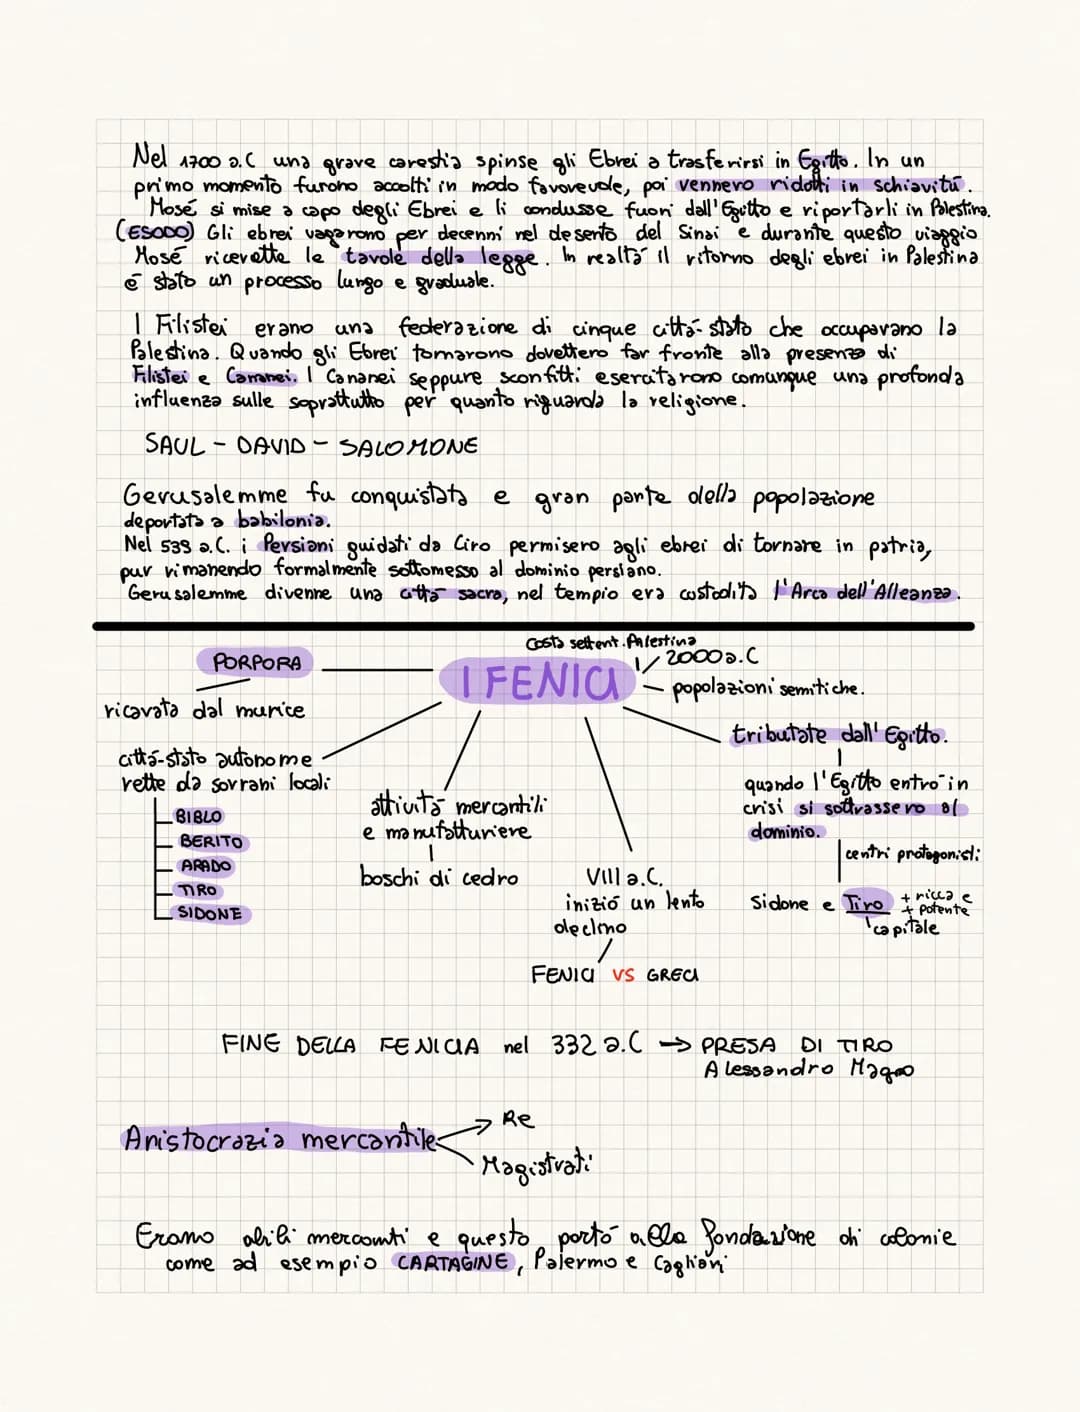 Nel 1700 a.C una grave carestia spinse gli Ebrei a trasferirsi in Egitto. In un
primo momento furono accolti in modo favorevole, poi vennero ridotti in schiavitú.
Mosé si mise a capo degli Ebrei e li condusse fuori dall'Egitto e riportarli in Palestina.
(ESODO) Gli ebrei vagarono per decenni nel deserto del Sinai e durante questo viaggio
Mosé ricevette le tavole della legge. In realtá il ritorno degli ebrei in Palestina
é stato un processo lungo e graduale.
I Filistei erano una federazione di cinque cittá-stato che occupavano la
Palestina. Quando gli Ebrei tornarono dovettero far fronte alla presenza di
Filistei e Cananei. I Cananei seppure sconfitti esercitarono comunque una profonda
influenza sulle soprattutto per quanto riguarda la religione.
SAUL - DAVID - SALOMONE
Gerusalemme fu conquistata e gran parte della popolazione
deportata a babilonia.
Nel 539 a.C. i Persiani guidati da Ciro permisero agli ebrei di tornare in patria,
pur rimanendo formalmente sottomesso al dominio persiano.
Gerusalemme divenne una cittá sacra, nel tempio era custodita l'Arca dell'Alleanza.
Costa settent. Palestina
PORPORA
I FENICI
2000 a.C
popolazioni semitiche.
ricavata dal murice
tributate dall'Egitto.
cittá-stato autonome
rette da sovrani locali
quando l'Egitto entró in
crisi si sottrassero al
dominio.
attivitá mercantili
e manufatturiere
BIBLO
BERITO
ARADO
TIRO
SIDONE
boschi di cedro
centri protagonisti:
VIII a.C.
inizió un lento
declino
Sidone e Tiro + ricca e
+ potente
capitale
FENICI VS GRECI
FINE DELLA FENICIA nel 332 a.C → PRESA DI TIRO
Alessandro Magno
Re
Aristocrazia mercantile
Magistrati
Erano abili mercanti e questo portó alla fondazione di colonie
come ad esempio CARTAGINE, Palermo e Cagliari